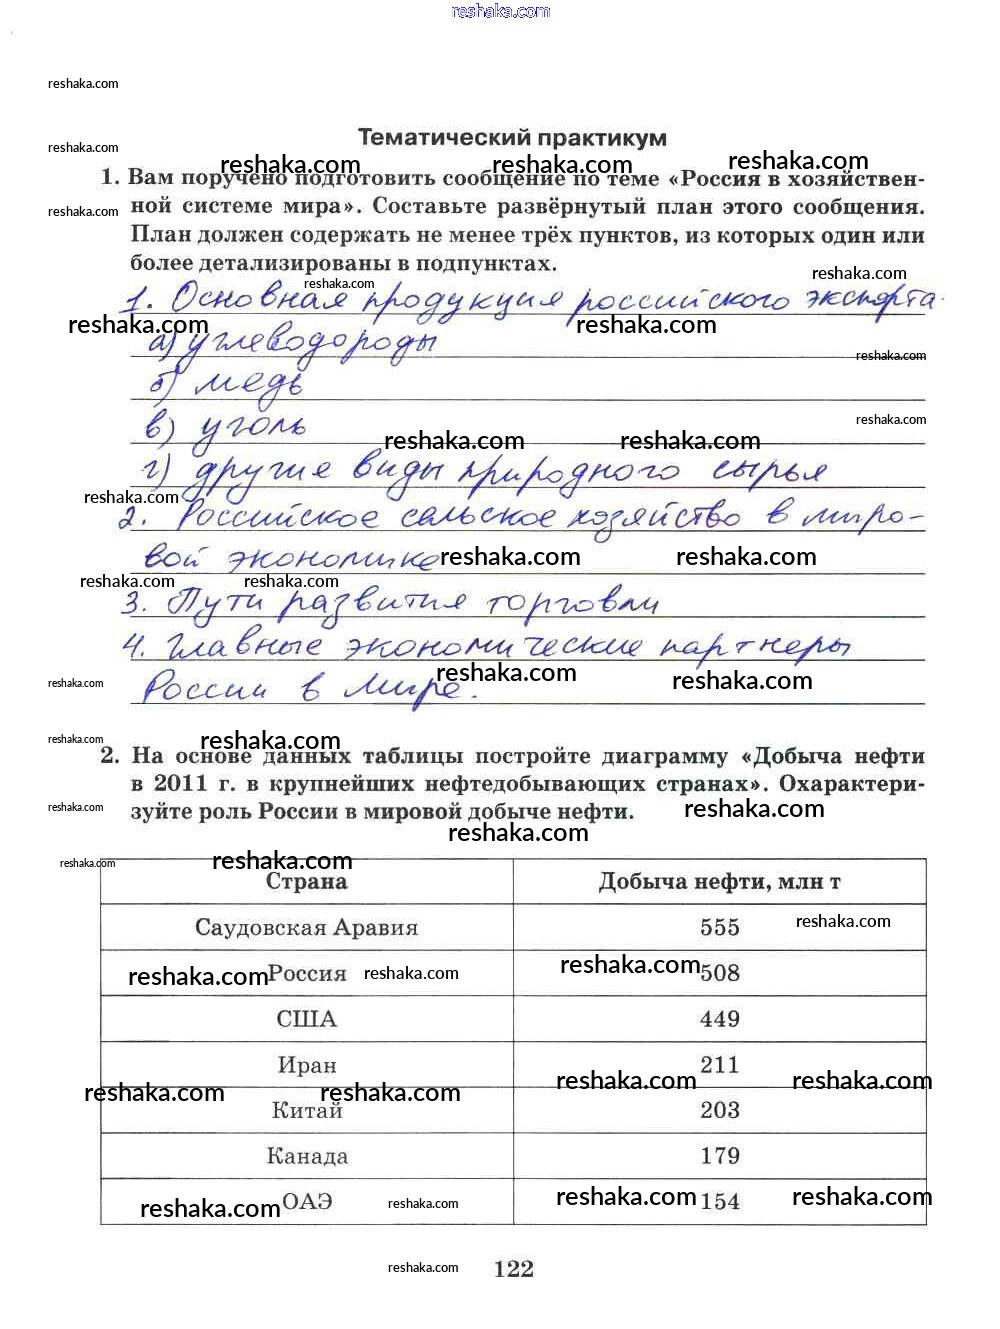 reshaka.com
reshaka.com
Тематический практикум
reshaka.com
reshaka.com reshaka.com reshaka.com
1. Вам поручено подготовить сообщение по теме «Россия в хозяйствен-
reshaka.com
ной системе мира». Составьте развёрнутый план этого сообщения.
План должен содержать не менее трёх пунктов, из которых один или
более детализированы в подпунктах.
reshaka.com
reshaka.com
1. Основная продукция российского экспорта.
reshaka.com reshaka.com
а) углеводороды
reshaka.com
б) медь
reshaka.com
в) уголь
reshaka.com reshaka.com
г) другие виды природного сырья
reshaka.com
2. Российское сельское хозяйство в миро-
вой экономике
reshaka.com reshaka.com
reshaka.com reshaka.com
3. Пути развития торговли
4. Главные экономические партнеры
reshaka.com reshaka.com
reshaka.com
России в мире.
reshaka.com
reshaka.com
2. На основе данных таблицы постройте диаграмму «Добыча нефти
в 2011 г. в крупнейших нефтедобывающих странах». Охарактери-
reshaka.com reshaka.com
зуйте роль России в мировой добыче нефти.
reshaka.com
reshaka.com reshaka.com
Страна Добыча нефти, млн т
Саудовская Аравия 555
reshaka.com
Россия 508
reshaka.com reshaka.com reshaka.com
США 449
Иран 211
reshaka.com reshaka.com
reshaka.com reshaka.com
Китай 203
Канада 179
ОАЭ 154
reshaka.com reshaka.com reshaka.com reshaka.com
reshaka.com
122